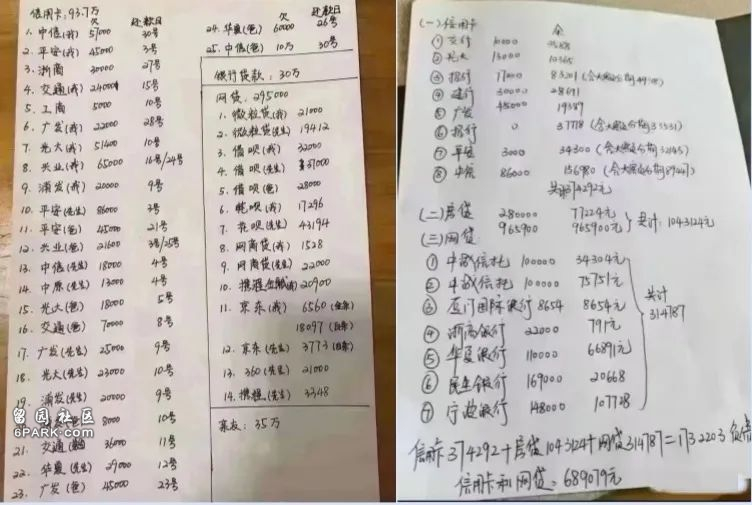 信用卡:93.7万
欠 还款日
1. 中信(我) 57000 30号
2. 平安(我) 45000 3号
3. 浙商 30000 27号
4. 交通(我) 24000 15号
5. 工商 5000 10号
6. 广发(我) 22000 28号
7. 光大(我) 51400 10号
8. 兴业(我) 65000 16号/24号
9. 浦发(我) 20000 9号
10. 平安(先生) 86000 3号
11. 平安(爸) 45000 21号
12. 兴业(爸) 21600 3号/25号
13. 中信(先生) 18000 4号
14. 中原(先生) 13000 4号
15. 光大(爸) 18000 5号
16. 交通(爸) 70000 8号
17. 广发(先生) 25000 9号
18. 光大(先生) 23000 10号
19. 浦发(先生) 20000 9号
8000 10号
21. 交通 36000 11号
22. 华夏(先生) 29000 12号
23. 广发(爸) 45000 23号
欠 还款日
24. 华夏(爸) 60000 26号
25. 中信(爸) 10万 30号
银行贷款:30万
网贷:295000
1. 微粒贷(我) 21000
2. 微粒贷(先生) 19412
3. 借呗(我) 32000
4. 借呗(先生) 37000
5. 借呗(爸) 28000
6. 花呗(我) 17296
7. 花呗(先生) 43194
8. 网商贷(我) 1528
9. 网商贷(先生) 22000
10. 携程金融(我) 20900
11. 京东(我) 6560 (金条)
18097 (白条)
12. 京东(先生) 3773 (白条)
13. 360(先生) 21000
14. 携程(先生) 3348
亲友:35万
留园社区
6PARK.COM
(一)信用卡 余
① 交行 10000
② 光大 13000 10365
③ 招行 17000
④ 建行 30000 28691
⑤ 广发 45000 19389
⑥ 招行 0 37778
⑦ 平安 3000 34300
⑧ 中信 86000 156980
共计374292元
(二)房贷 280000 77224元
965900 965900元 共计:1043124元
(三)网贷
① 中诚信托 100000 34304元
② 中诚信托 100000 75751元
③ 厦门国际银行 8654 8654元
④ 浙商银行 22000 791元
⑤ 华夏银行 110000 66891元
⑥ 民生银行 169000 20668
⑦ 宁波银行 148000 107728
共计
314787
信用卡374292+房贷1043124+网贷314787=1732203负债
信用卡和网贷:689079元